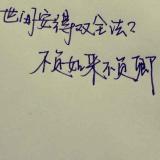 世间安得双全法？
不负如来不负卿